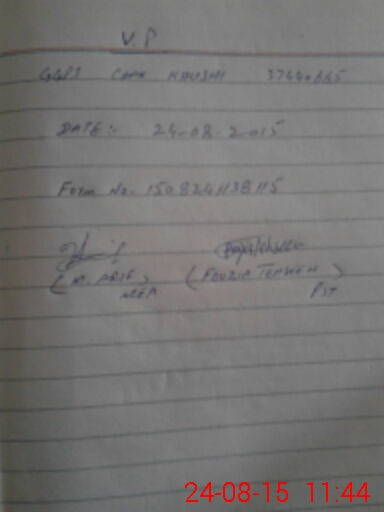 V.P
GGPS CHAK KHUSHI 37440665
DATE:- 24-08-2015
Form No. 1508241138115
(M. ARIF) (FOUZIA TEHSEEN)
MEA PST
24-08-15 11:44